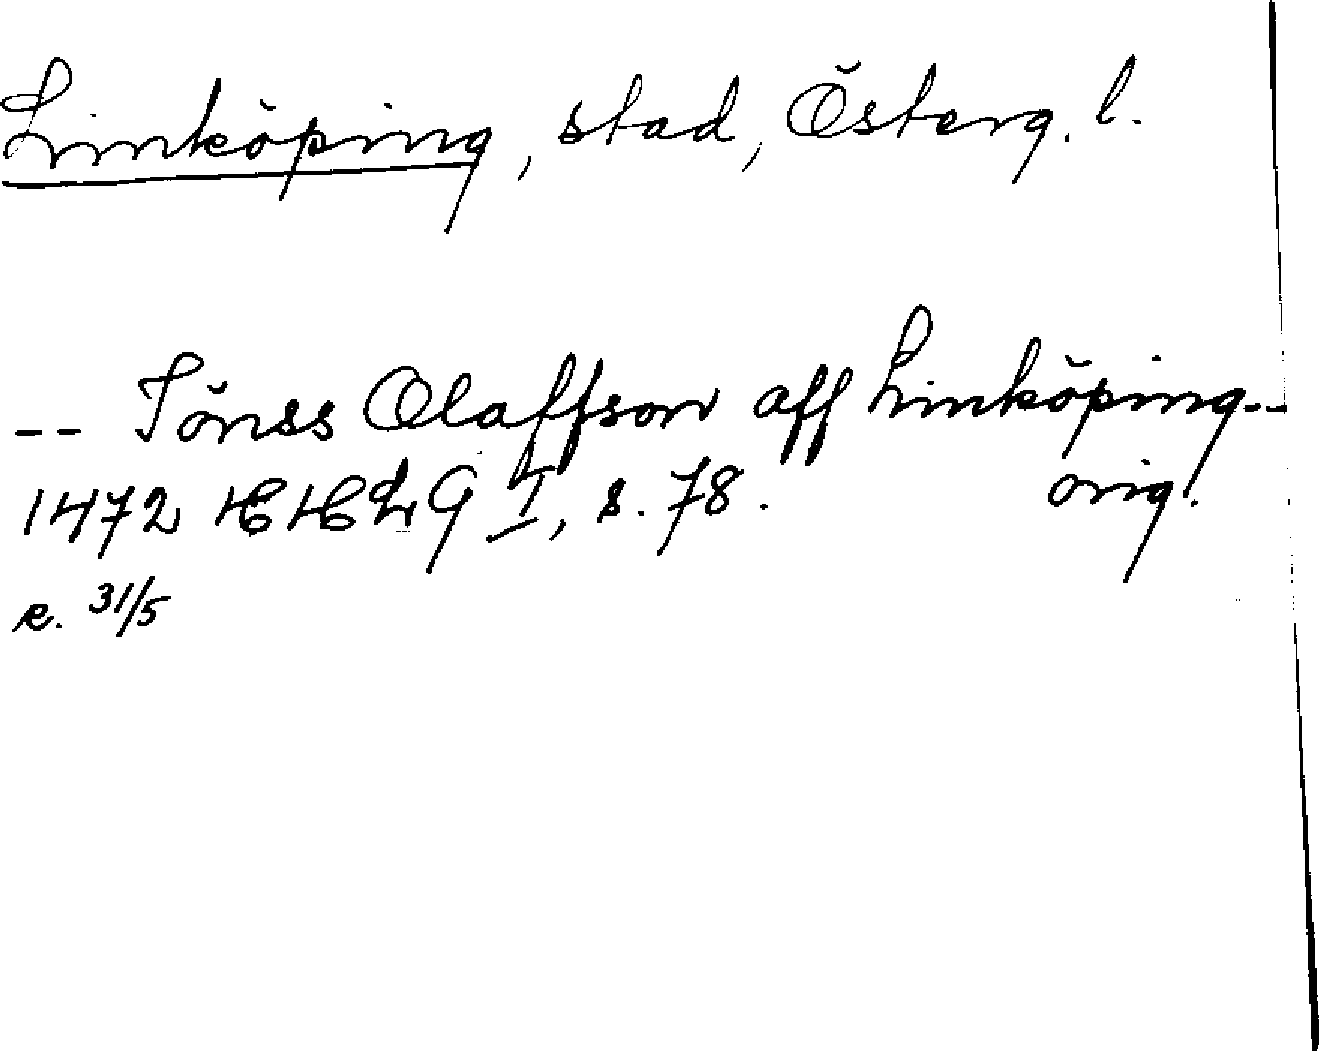 Linköping, stad, Österg. l.
-- Jönss Olaffson aff Linköping--
1472 HHLG I, s. 78. orig.
e. 31/5